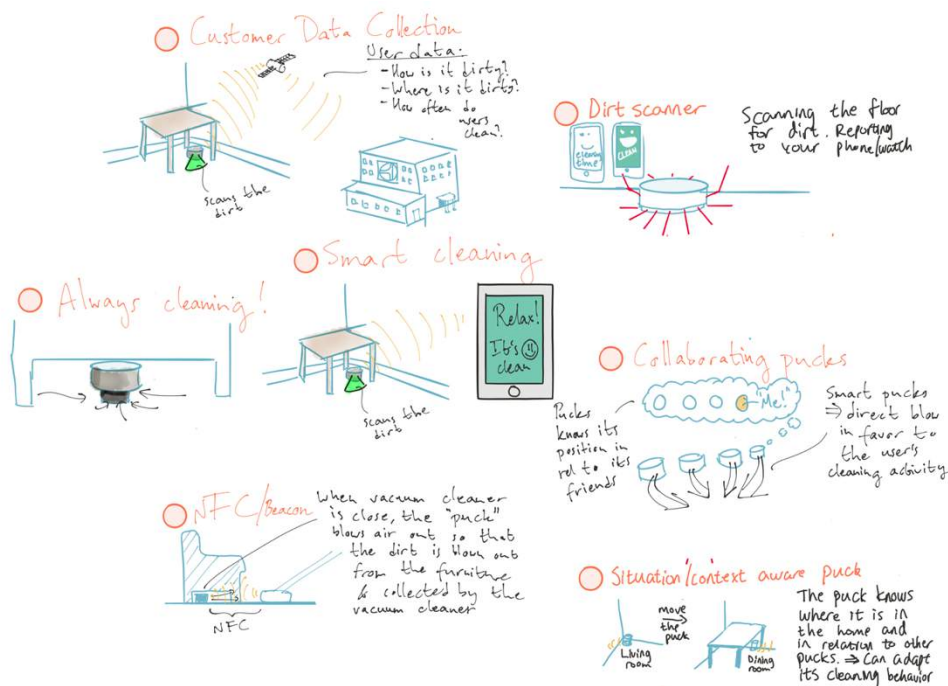 Customer Data Collection
User data:
- How is it dirty?
- Where is it dirty?
- How often do
users
clean?
scans the
dirt
Dirt scanner
cleaning
time
CLEAN
Scanning the floor
for dirt. Reporting
to your phone/watch
Always cleaning!
Smart cleaning
scans the
dirt
Relax!
It's
clean
Collaborating pucks
"Me!"
Pucks
knows its
position in
rel to its
friends
Smart pucks
⇒ direct blow
in favor to
the user's
cleaning activity
NFC/Beacon
When vacuum cleaner
is close, the "puck"
blows air out so that
the dirt is blown out
from the furniture
& collected by the
vacuum cleaner
NFC
Situation/context aware puck
move
the
puck
Living
room
Dining
room
The puck knows
where it is in
the home and
in relation to other
pucks. ⇒ Can adapt
its cleaning behavior